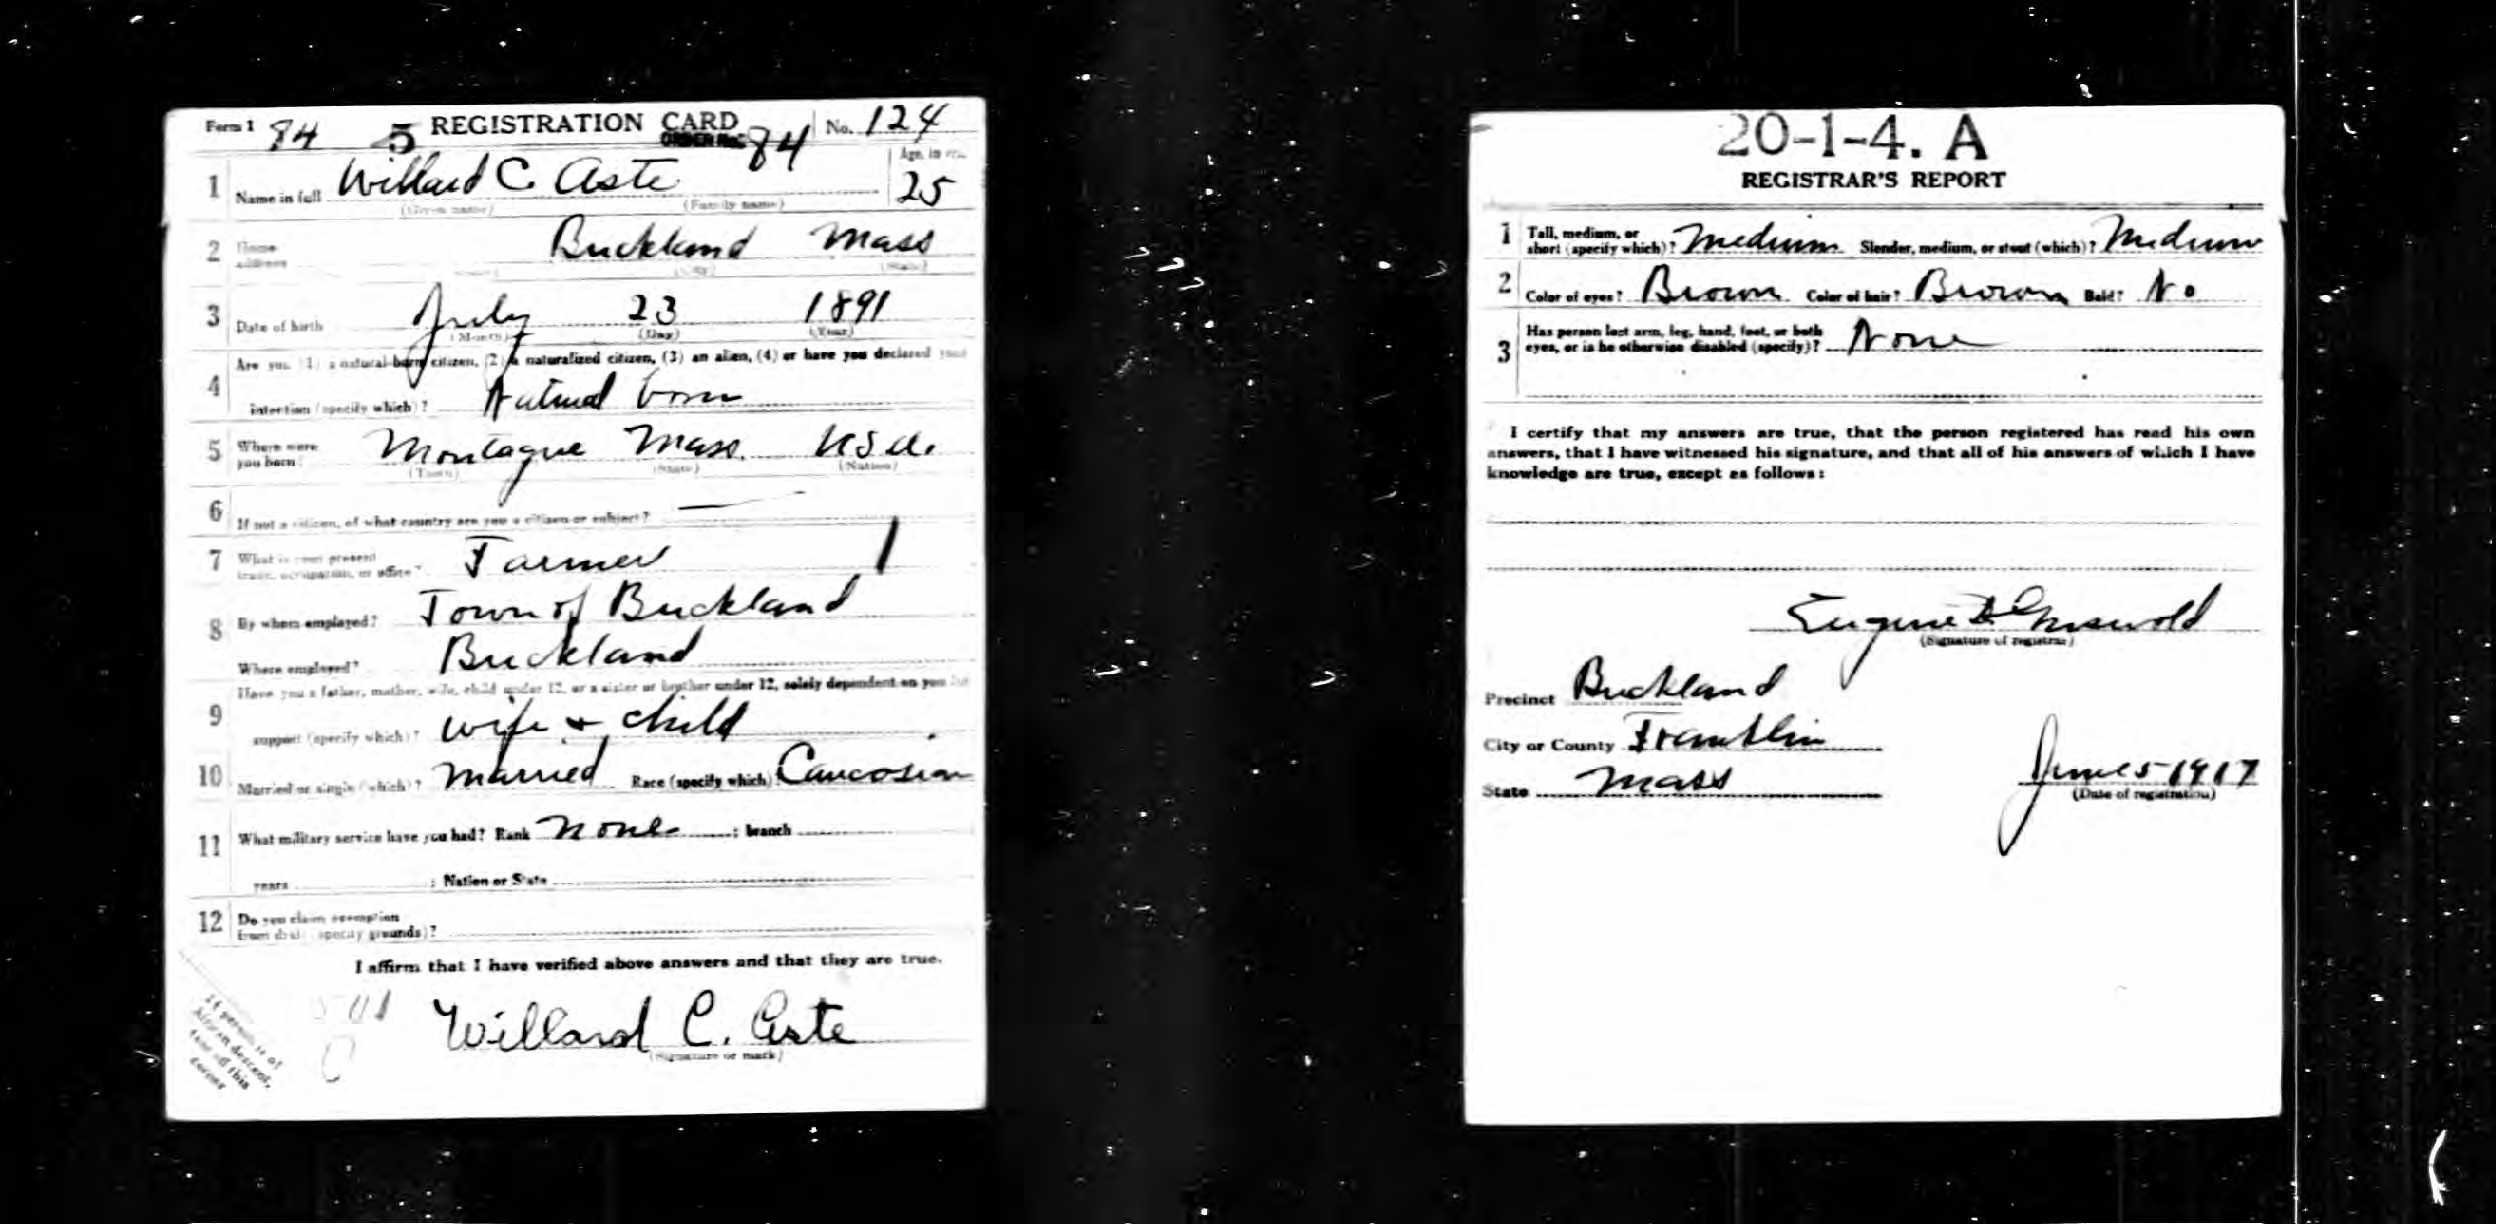 Form 1 84 5 REGISTRATION CARD No. 124
ORDER No. 84
Age, in yrs.
1 Name in full Willard C. Aste 25
(Given name) (Family name)
2 Home address Buckland Mass
(City) (State)
3 Date of birth July 23 1891
(Month) (Day) (Year)
4 Are you (1) a natural-born citizen, (2) a naturalized citizen, (3) an alien, (4) or have you declared your
intention (specify which)? Natural born
5 Where were you born? Montague Mass. USA.
(Town) (State) (Nation)
6 If not a citizen, of what country are you a citizen or subject? —
7 What is your present trade, occupation, or office? Farmer 1
8 By whom employed? Town of Buckland
Where employed? Buckland
9 Have you a father, mother, wife, child under 12, or a sister or brother under 12, solely dependent on you for
support (specify which)? wife + child
10 Married or single (which)? married Race (specify which)? Caucosian
11 What military service have you had? Rank none ; branch
years ; Nation or State
12 Do you claim exemption
from draft (specify grounds)?
I affirm that I have verified above answers and that they are true.
Willard C. Aste
(Signature or mark)
If person is of
African descent,
tear off this
corner
20-1-4. A
REGISTRAR'S REPORT
1 Tall, medium, or
short (specify which)? Medium Slender, medium, or stout (which)? Medium
2 Color of eyes? Brown Color of hair? Brown Bald? No
3 Has person lost arm, leg, hand, foot, or both
eyes, or is he otherwise disabled (specify)? None
I certify that my answers are true, that the person registered has read his own
answers, that I have witnessed his signature, and that all of his answers of which I have
knowledge are true, except as follows:
Eugene D Griswold
(Signature of registrar)
Precinct Buckland
City or County Franklin
State Mass
June 5 1917
(Date of registration)